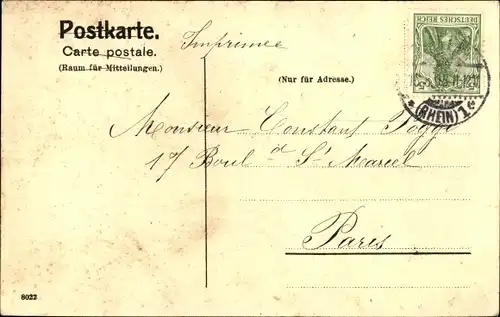 Postkarte.
Carte postale.
(Raum für Mitteilungen.)
Imprimée
DEUTSCHES REICH
5 5
(RHEIN) 1
(Nur für Adresse.)
Monsieur Constant
17 Boul d St Marcel
Paris
8022